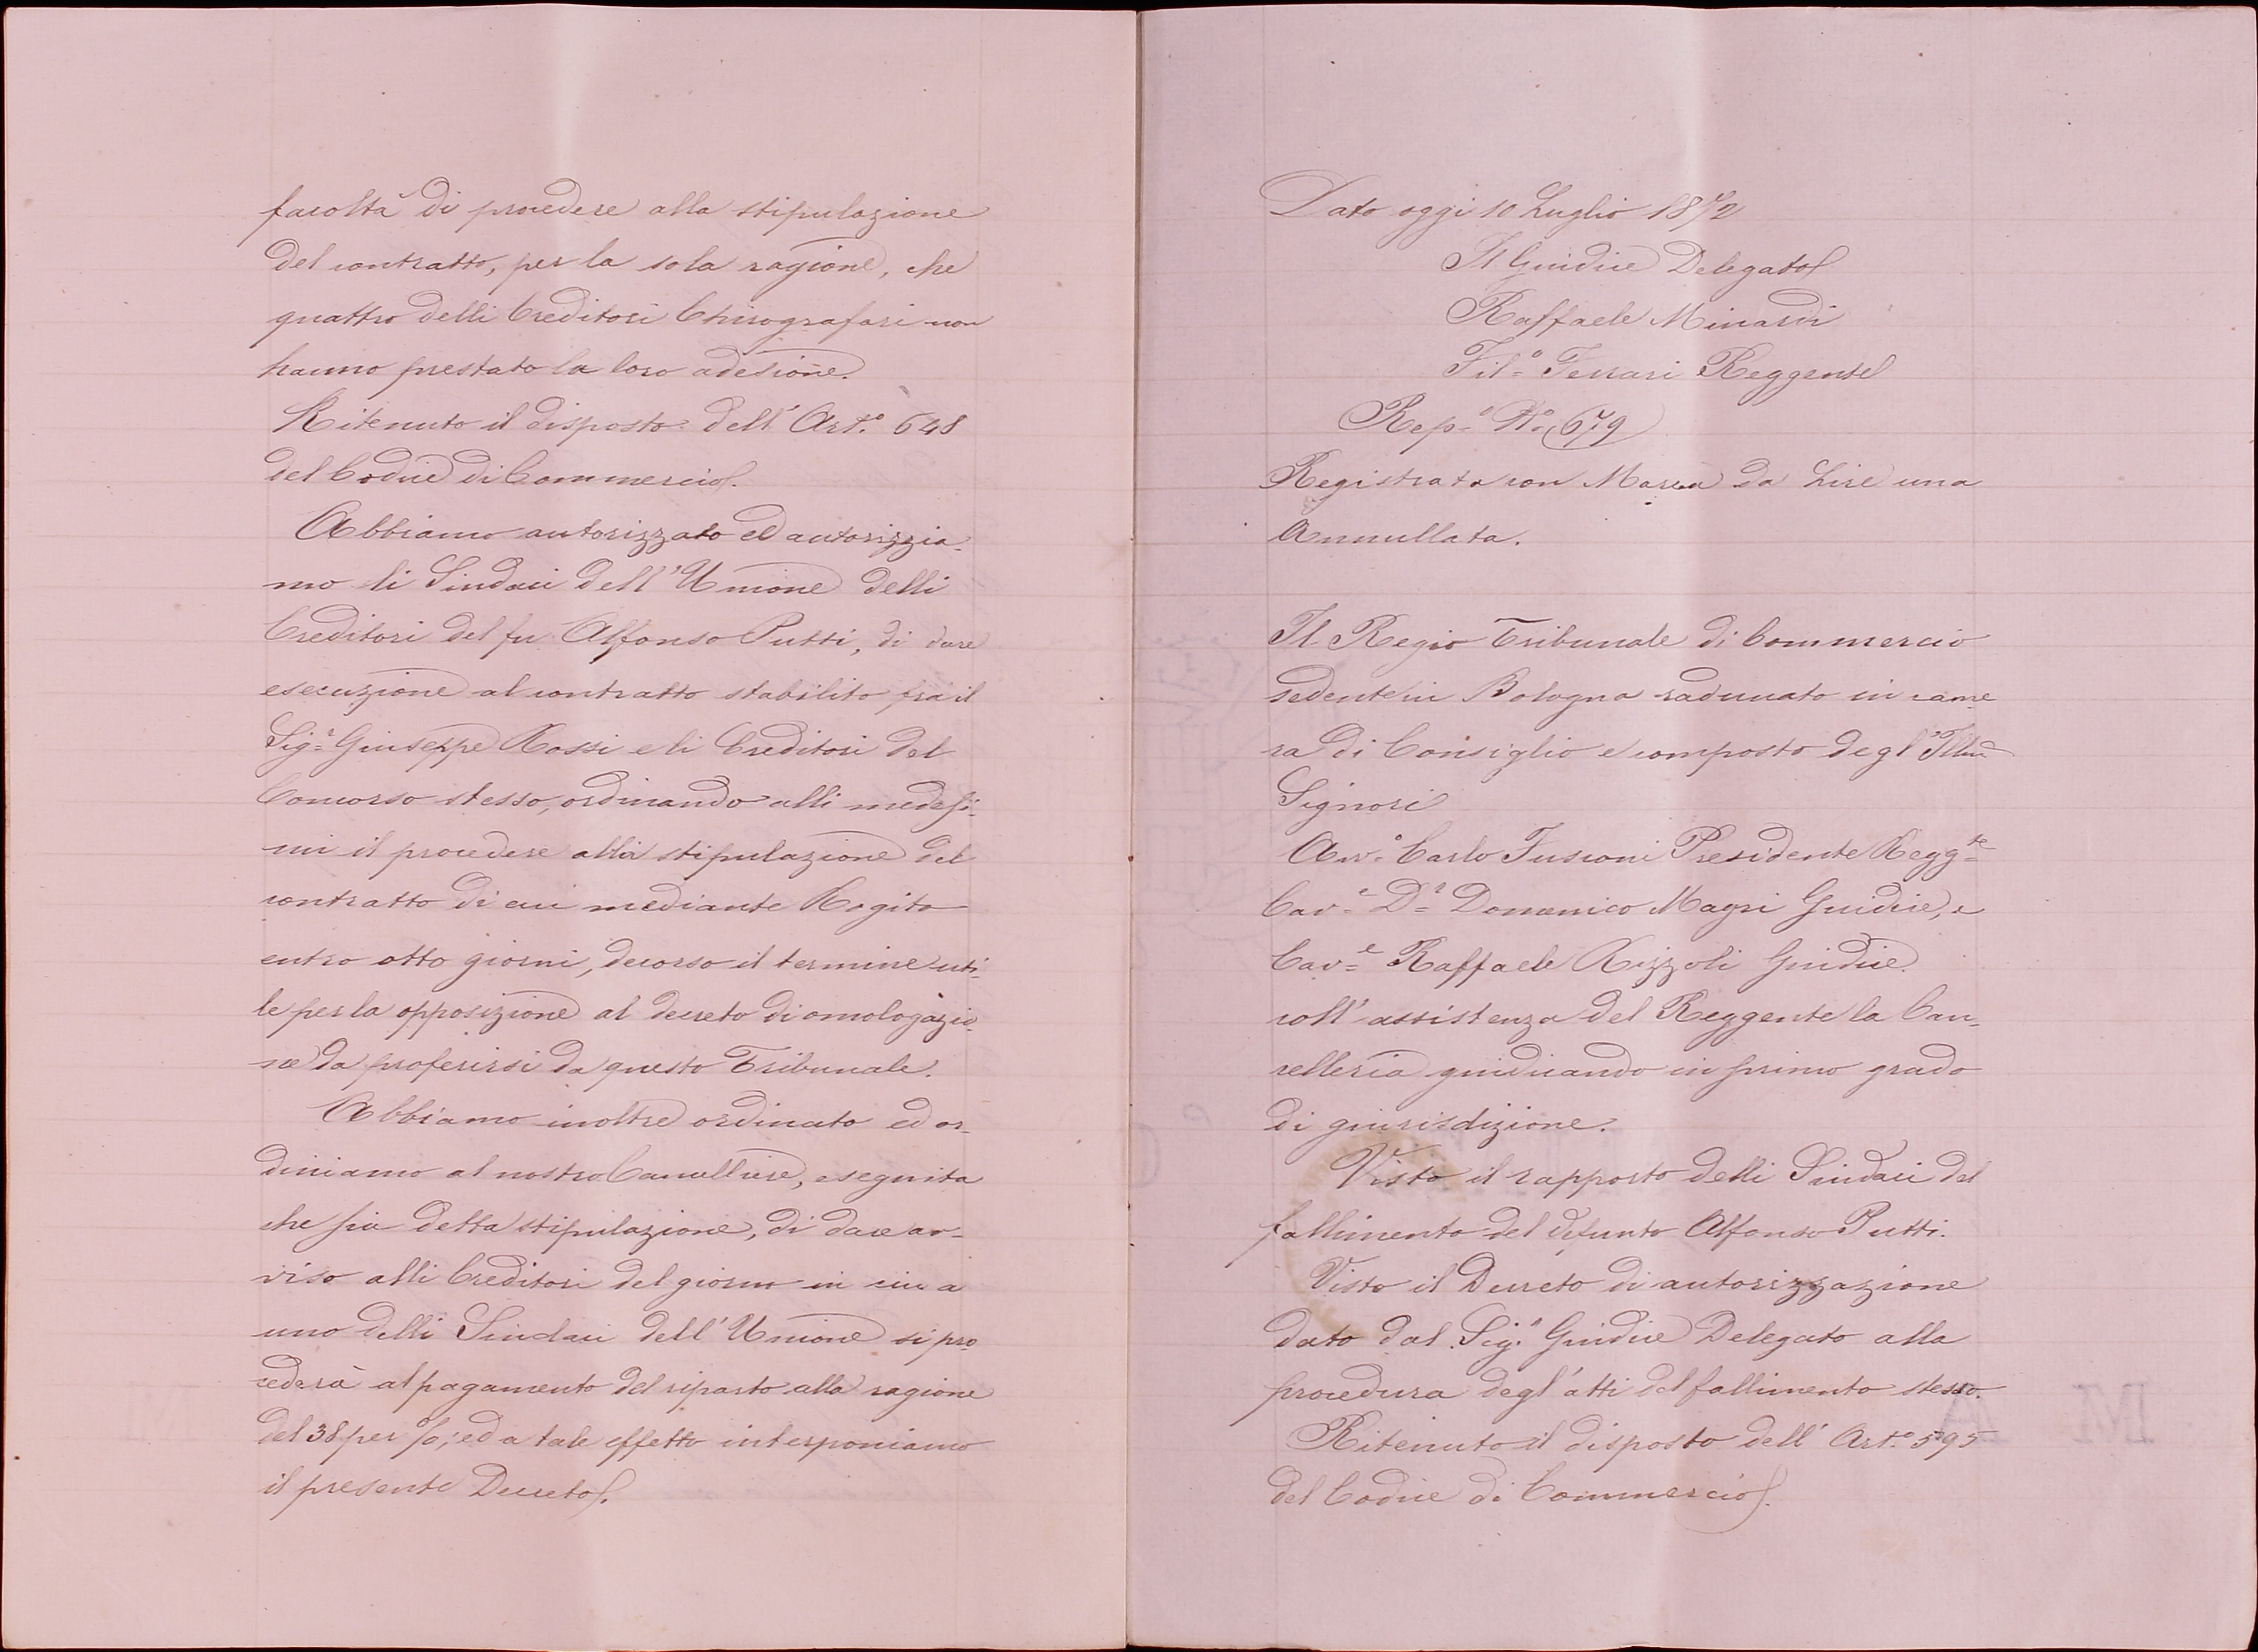 facoltà di procedere alla stipulazione
del contratto, per la sola ragione, che
quattro delli Creditori Chirografari non
hanno prestato la loro adesione.
Ritenuto il disposto dell' Art.º 648
del Codice di Commercio.
Abbiamo autorizzato ed autorizzia-
mo li Sindaci dell' Unione delli
Creditori del fu Alfonso Putti, di dare
esecuzione al contratto stabilito fra il
Sig.r Giuseppe Rossi e li Creditori del
Concorso stesso, ordinando alli medesi-
mi il procedere alla stipulazione del
contratto di cui mediante Rogito
entro otto giorni, decorso il termine uti-
le per la opposizione al decreto di omologazio-
ne da proferirsi da questo Tribunale.
Abbiamo inoltre ordinato ed or-
diniamo al nostro Cancelliere, eseguita
che sia detta stipulazione, di dare av-
viso alli Creditori del giorno in cui a
uno delli Sindaci dell' Unione si pro
cederà al pagamento del riparto alla ragione
del 38 per %; ed a tale effetto interponiamo
il presente Decreto.
Dato oggi 10 Luglio 1872
Il Giudice Delegato
Raffaele Minardi
Fil.º Ferrari Reggente
Rep.º N.º 679
Registrato con Marca da Lire una
Annullata.
Il Regio Tribunale di Commercio
sedente in Bologna radunato in came
ra di Consiglio e composto degl' Illmi
Signori
Avv.º Carlo Fusconi Presidente Regg.te
Cav.e D.r Domenico Magri Giudice, e
Cav.e Raffaele Rizzoli Giudice
coll' assistenza del Reggente la Can-
celleria giudicando in primo grado
di giurisdizione.
Visto il rapporto delli Sindaci del
fallimento del defunto Alfonso Putti.
Visto il Decreto di autorizzazione
dato dal Sig.r Giudice Delegato alla
procedura degl' atti del fallimento stesso.
Ritenuto il disposto dell' Art.º 595
del Codice di Commercio.